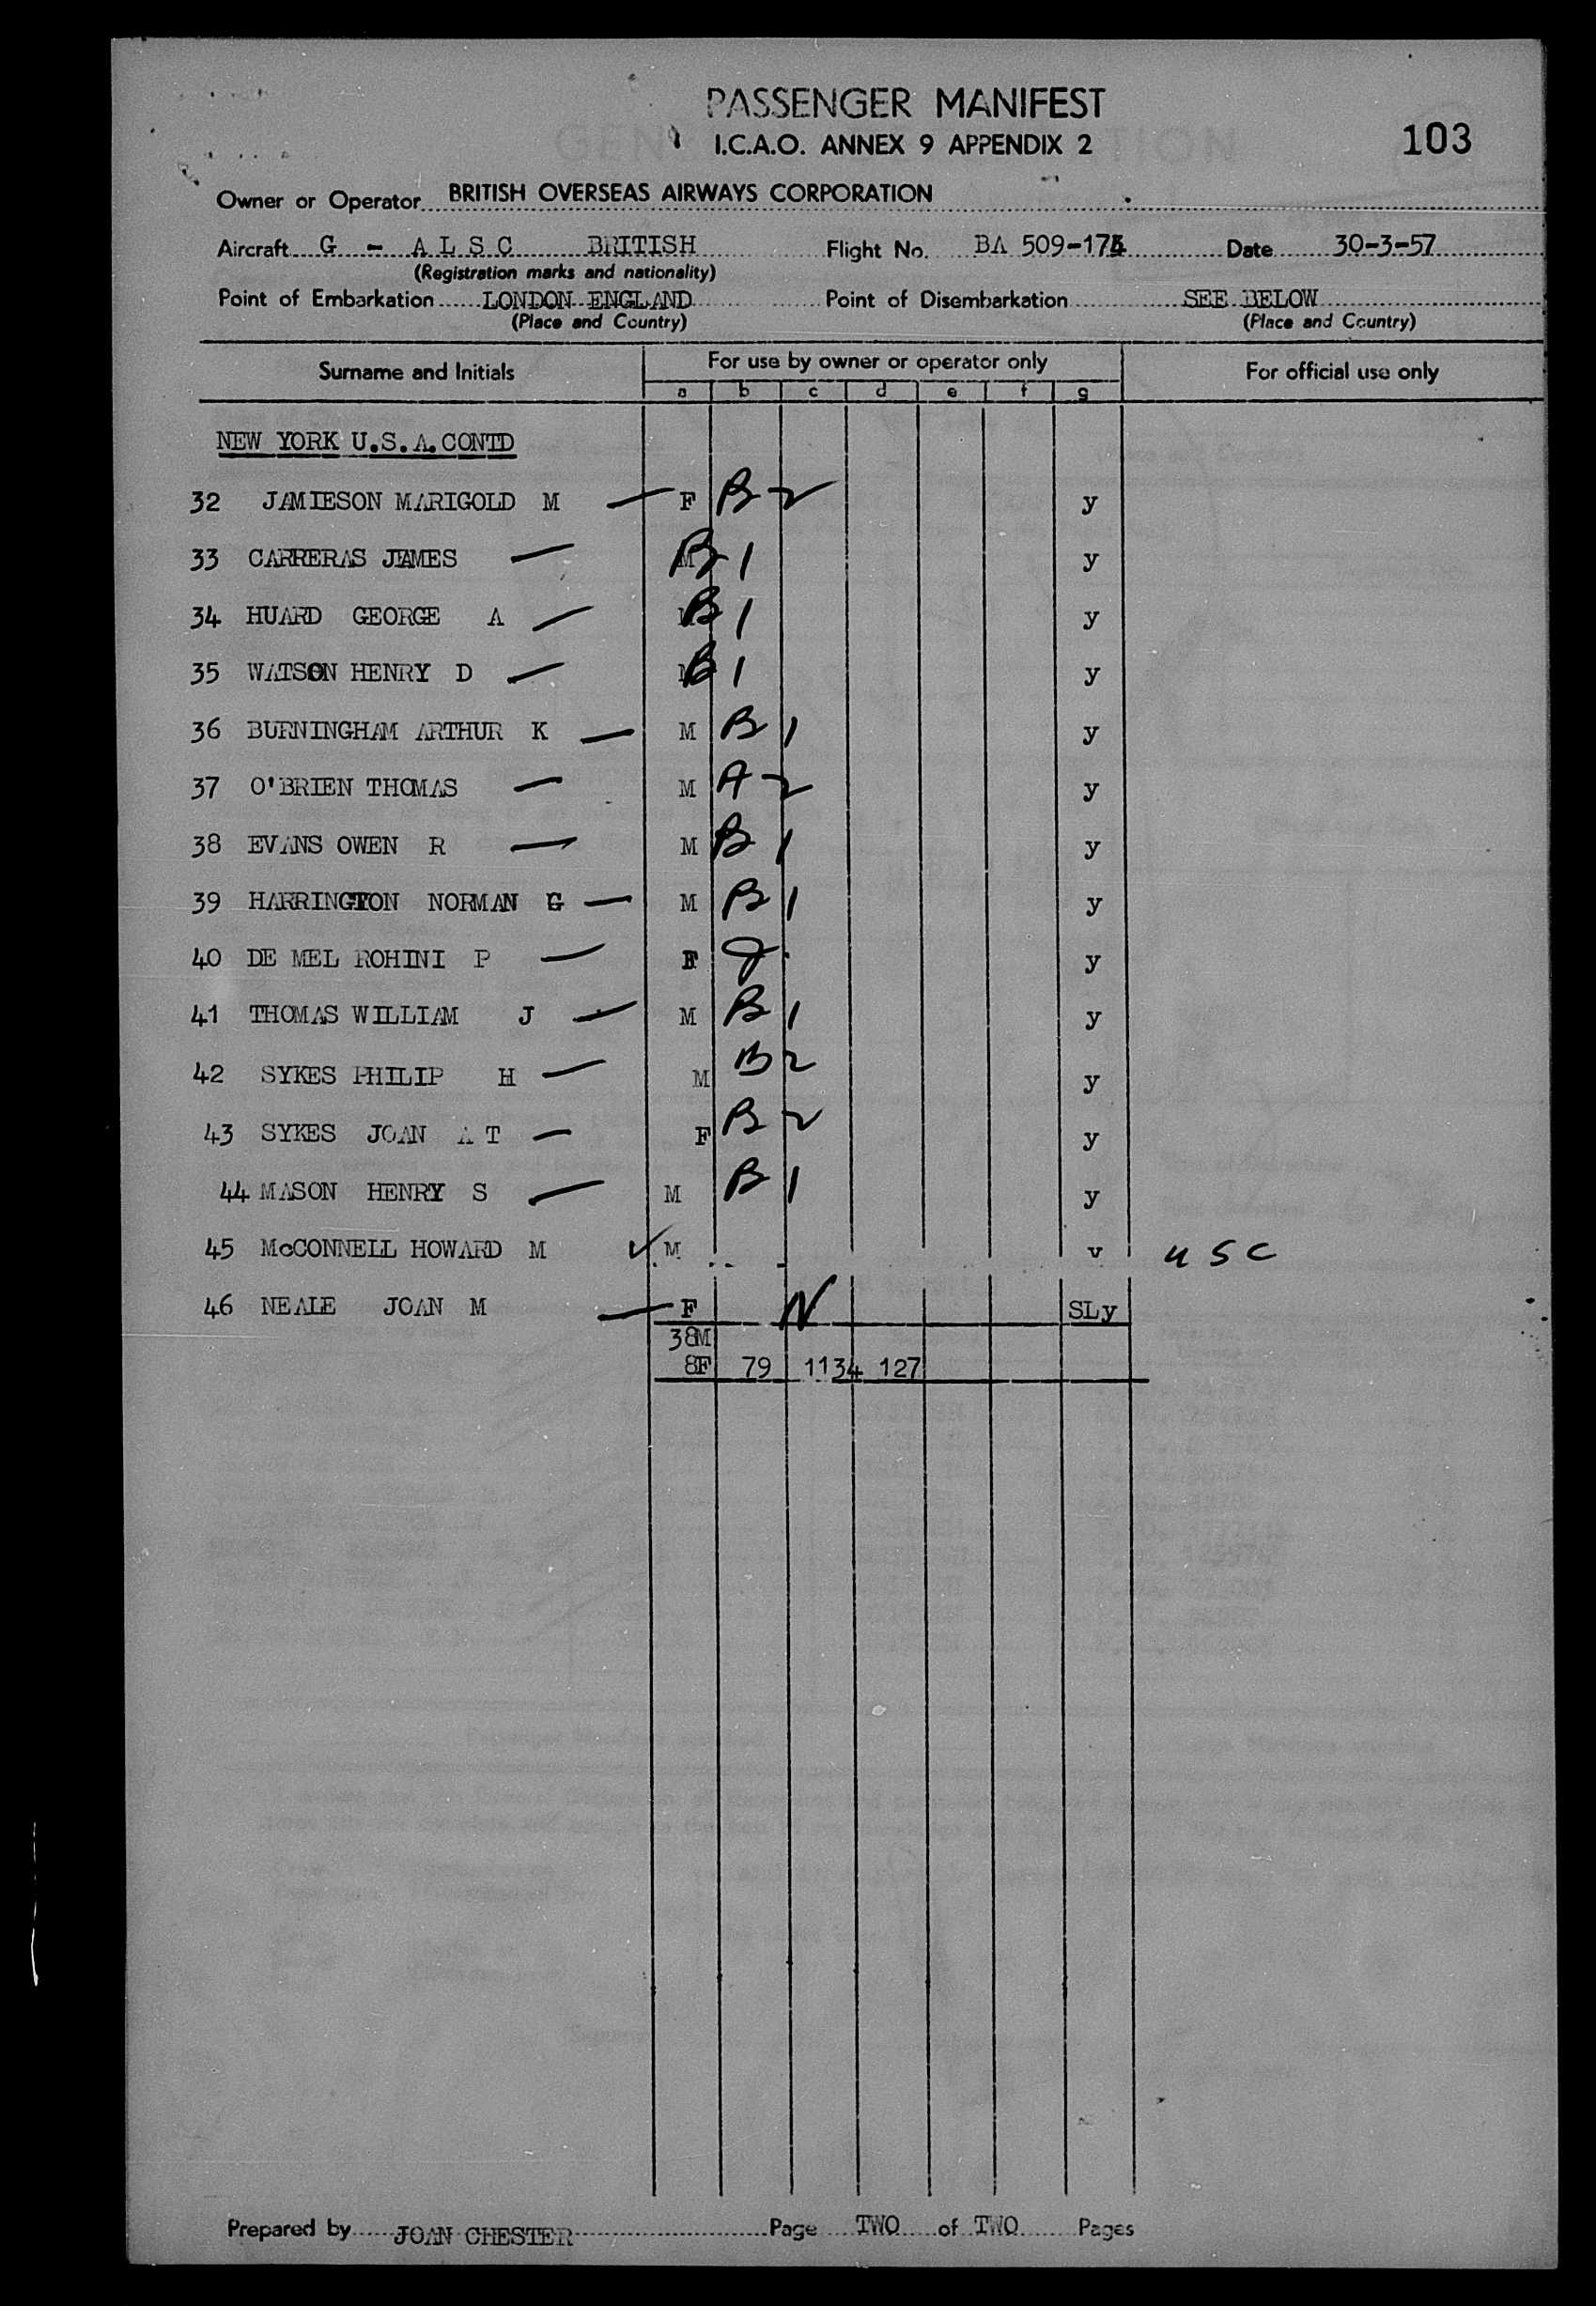 PASSENGER MANIFEST
I.C.A.O. ANNEX 9 APPENDIX 2
103
Owner or Operator BRITISH OVERSEAS AIRWAYS CORPORATION
Aircraft G - A L S C BRITISH Flight No. BA 509-17 Date 30-3-57
(Registration marks and nationality)
Point of Embarkation LONDON ENGLAND Point of Disembarkation SEE BELOW
(Place and Country) (Place and Country)
Surname and Initials For use by owner or operator only For official use only
a b c d e f g
NEW YORK U.S.A. CONTD
32 JAMIESON MARIGOLD M — F B2 y
33 CARRERAS JAMES — M B1 y
34 HUARD GEORGE A — M B1 y
35 WATSON HENRY D — M B1 y
36 BURNINGHAM ARTHUR K — M B1 y
37 O'BRIEN THOMAS — M A2 y
38 EVANS OWEN R — M B1 y
39 HARRINGTON NORMAN G — M B1 y
40 DE MEL ROHINI P — F y
41 THOMAS WILLIAM J — M B1 y
42 SYKES PHILIP H — M B2 y
43 SYKES JOAN A T — F B2 y
44 MASON HENRY S — M B1 y
45 McCONNELL HOWARD M ✓ M y USC
46 NEALE JOAN M — F N SLy
38M
8F 79 1134 127
Prepared by JOAN CHESTER Page TWO of TWO Pages